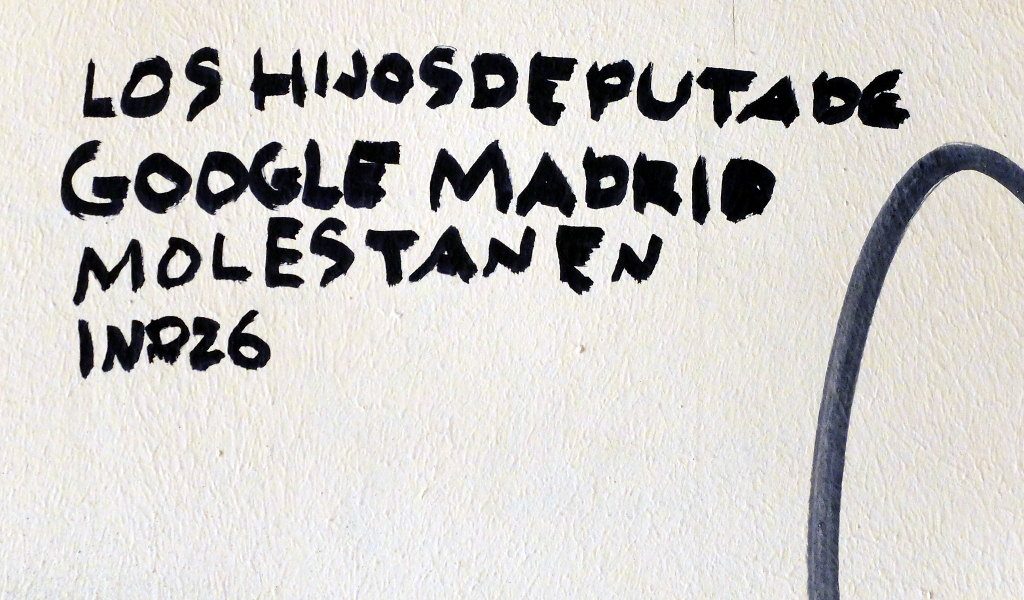 LOS HIJOSDEPUTADE
GOOGLE MADRID
MOLESTAN EN
IND26